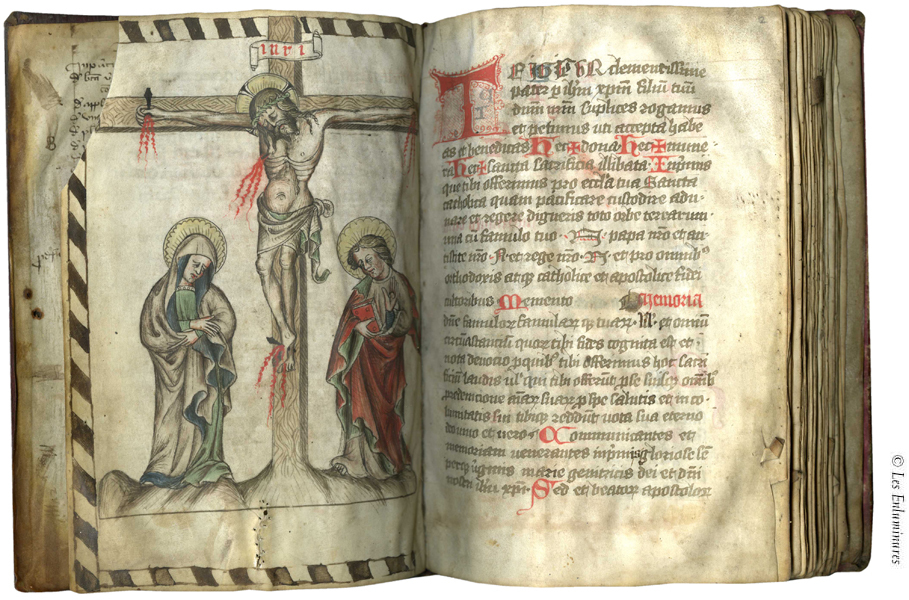 inri
TE IGITUR clementissime
pater p ihm xpm filiu tuu
dnm nrm suplices rogamus
et petimus uti accepta habe
as et benedicas Hec ✝ dona Hec ✝ mune
ra Hec ✝ sancta sacrificia illibata Inprimis
que tibi offerimus pro ecclia tua sancta
catholica quam pacificare custodire adu
nare et regere digneris toto orbe terrarum
una cu famulo tuo papa nro et an
tistite nro N et rege nro N et pro omnib
orthodoxis atqz catholice et apostolice fidei
cultoribus Memento Memoria
dne famulor famularz qz tuarz N et omniu
circumstanciu quor tibi fides cognita est et
nota devocio p quibz tibi offerimus hoc sacri
ficiu laudis vl qui tibi offerut p se suisqz omibz
redemcione aiarz suarz p spe salutis et in co
lumitatis sue tibiqz reddut vota sua eterno
deo vivo et vero Communicantes et
memoriam venerantes inprimis gloriose se
perqz virginis marie genitricis dei et dni
nostri ihu xpi Sed et beatorz apostolorz
© Les Enluminures